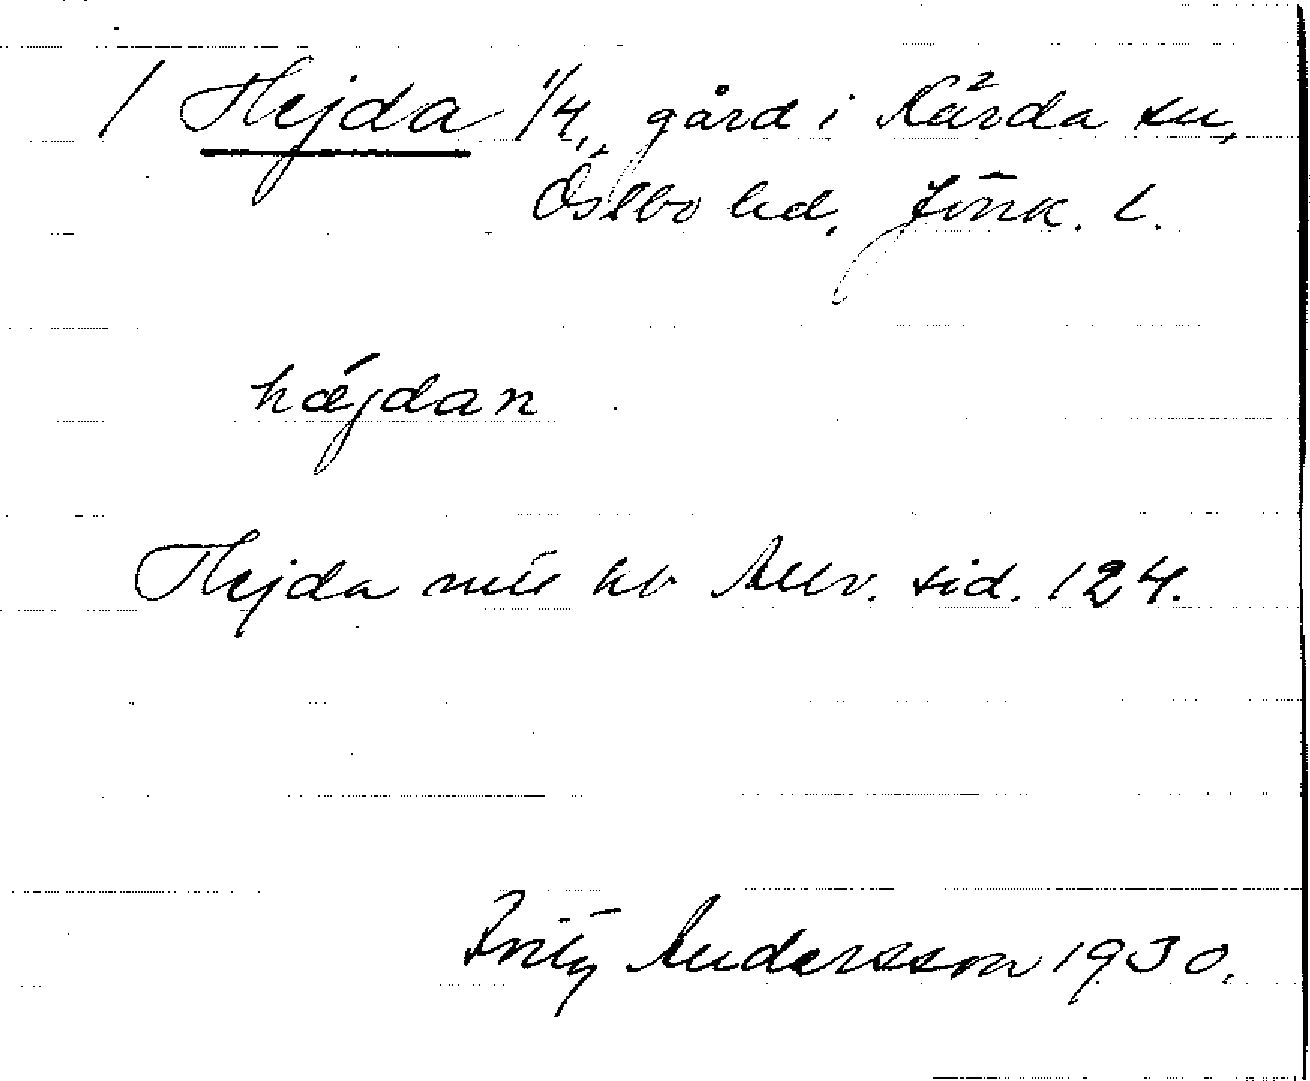 / Hejda 1/4, gård i Kärda sn,
Östbo hd. Jönk. l.
hǽjdan
Hejda mtl sid. 124.
Fritz Andersson 1930.